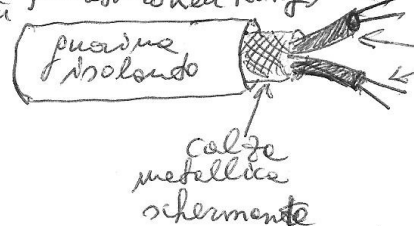 guaina
isolando
calza
metallica
schermante